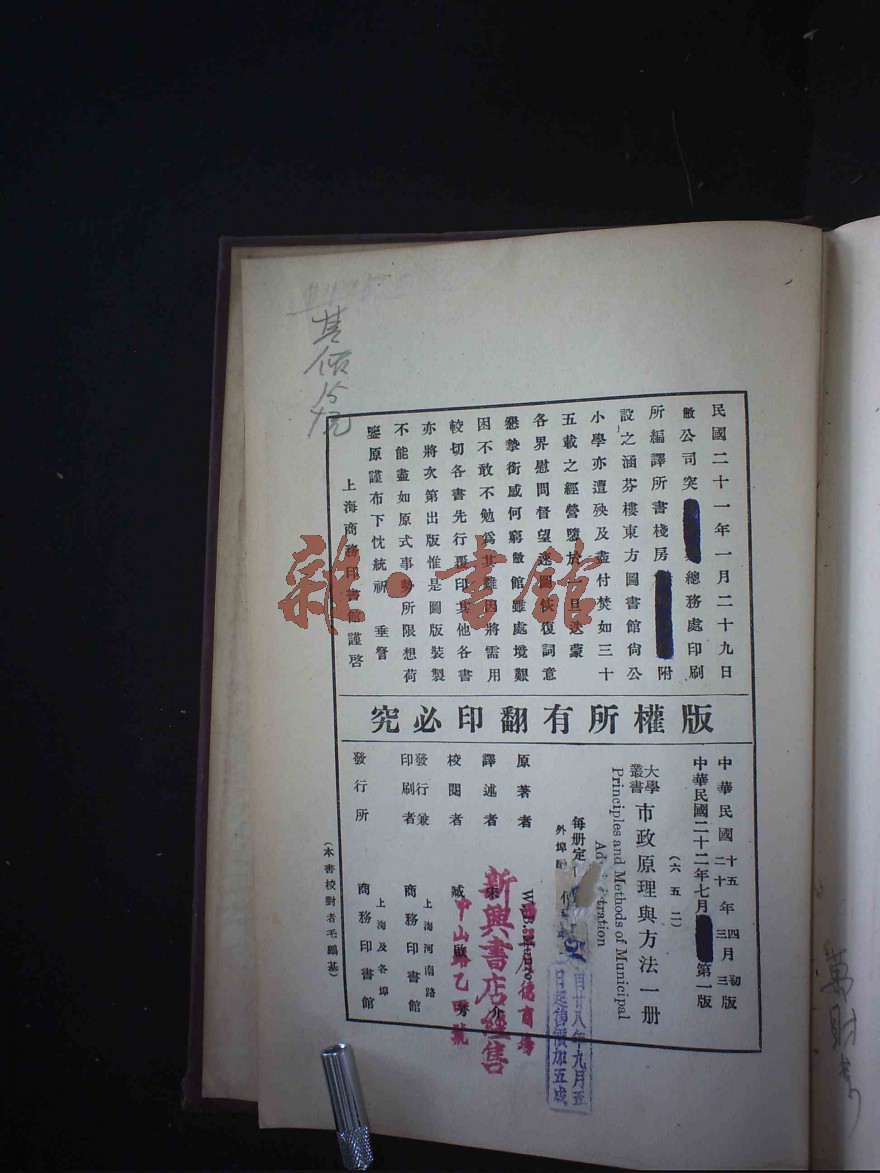 售價
15元
民國二十一年一月二十九日
敝公司突 總務處印刷
所編譯所書棧房 附
設之涵芬樓東方圖書館尙公
小學亦遭殃及盡付焚如三十
五載之經營隳於一旦迭蒙
各界慰問督望速圖恢復詞意
懇摯銜感何窮敝館雖處境艱
困不敢不勉爲其難因將需用
較切各書先行覆印其他各書
亦將次第出版惟是圖版裝製
不能盡如原式事勢所限想荷
鑒原謹布下忱統祈 垂詧
上海商務印書館謹啓
雜·書館
版權所有翻印必究
中華民國十五年四月初版
二十三三版
中華民國二十二年七月 第一版
(六五二)
大學叢書 市政原理與方法一册
Principles and Methods of Municipal
Administration
每册定價
外埠
原著者 W. B. Munro
譯述者 宋介
校閱者 臧啟芳
發行兼印刷者 上海河南路 商務印書館
發行所 上海及各埠 商務印書館
(本書校對者毛鵬基)
德商場
新興書店經售
中山路乙 號
廿八年九月
日起售價加五成